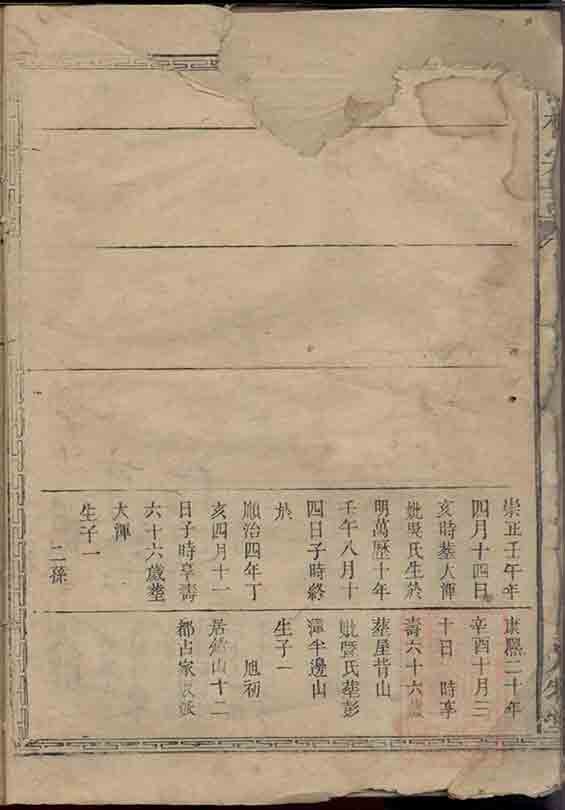 崇正壬午年
四月十四日
亥時塟大渾
妣吳氏生於
明萬歷十年
壬午八月十
四日子時終
於
順治四年丁
亥四月十一
日子時享壽
六十六歲塟
大渾
生子一
二孫
康熙二十年
辛酉十月三
十日 時享
壽六十六歲
塟屋背山
妣暨氏塟彭
渾半邊山
生子一
旭初
居 山十二
都占家